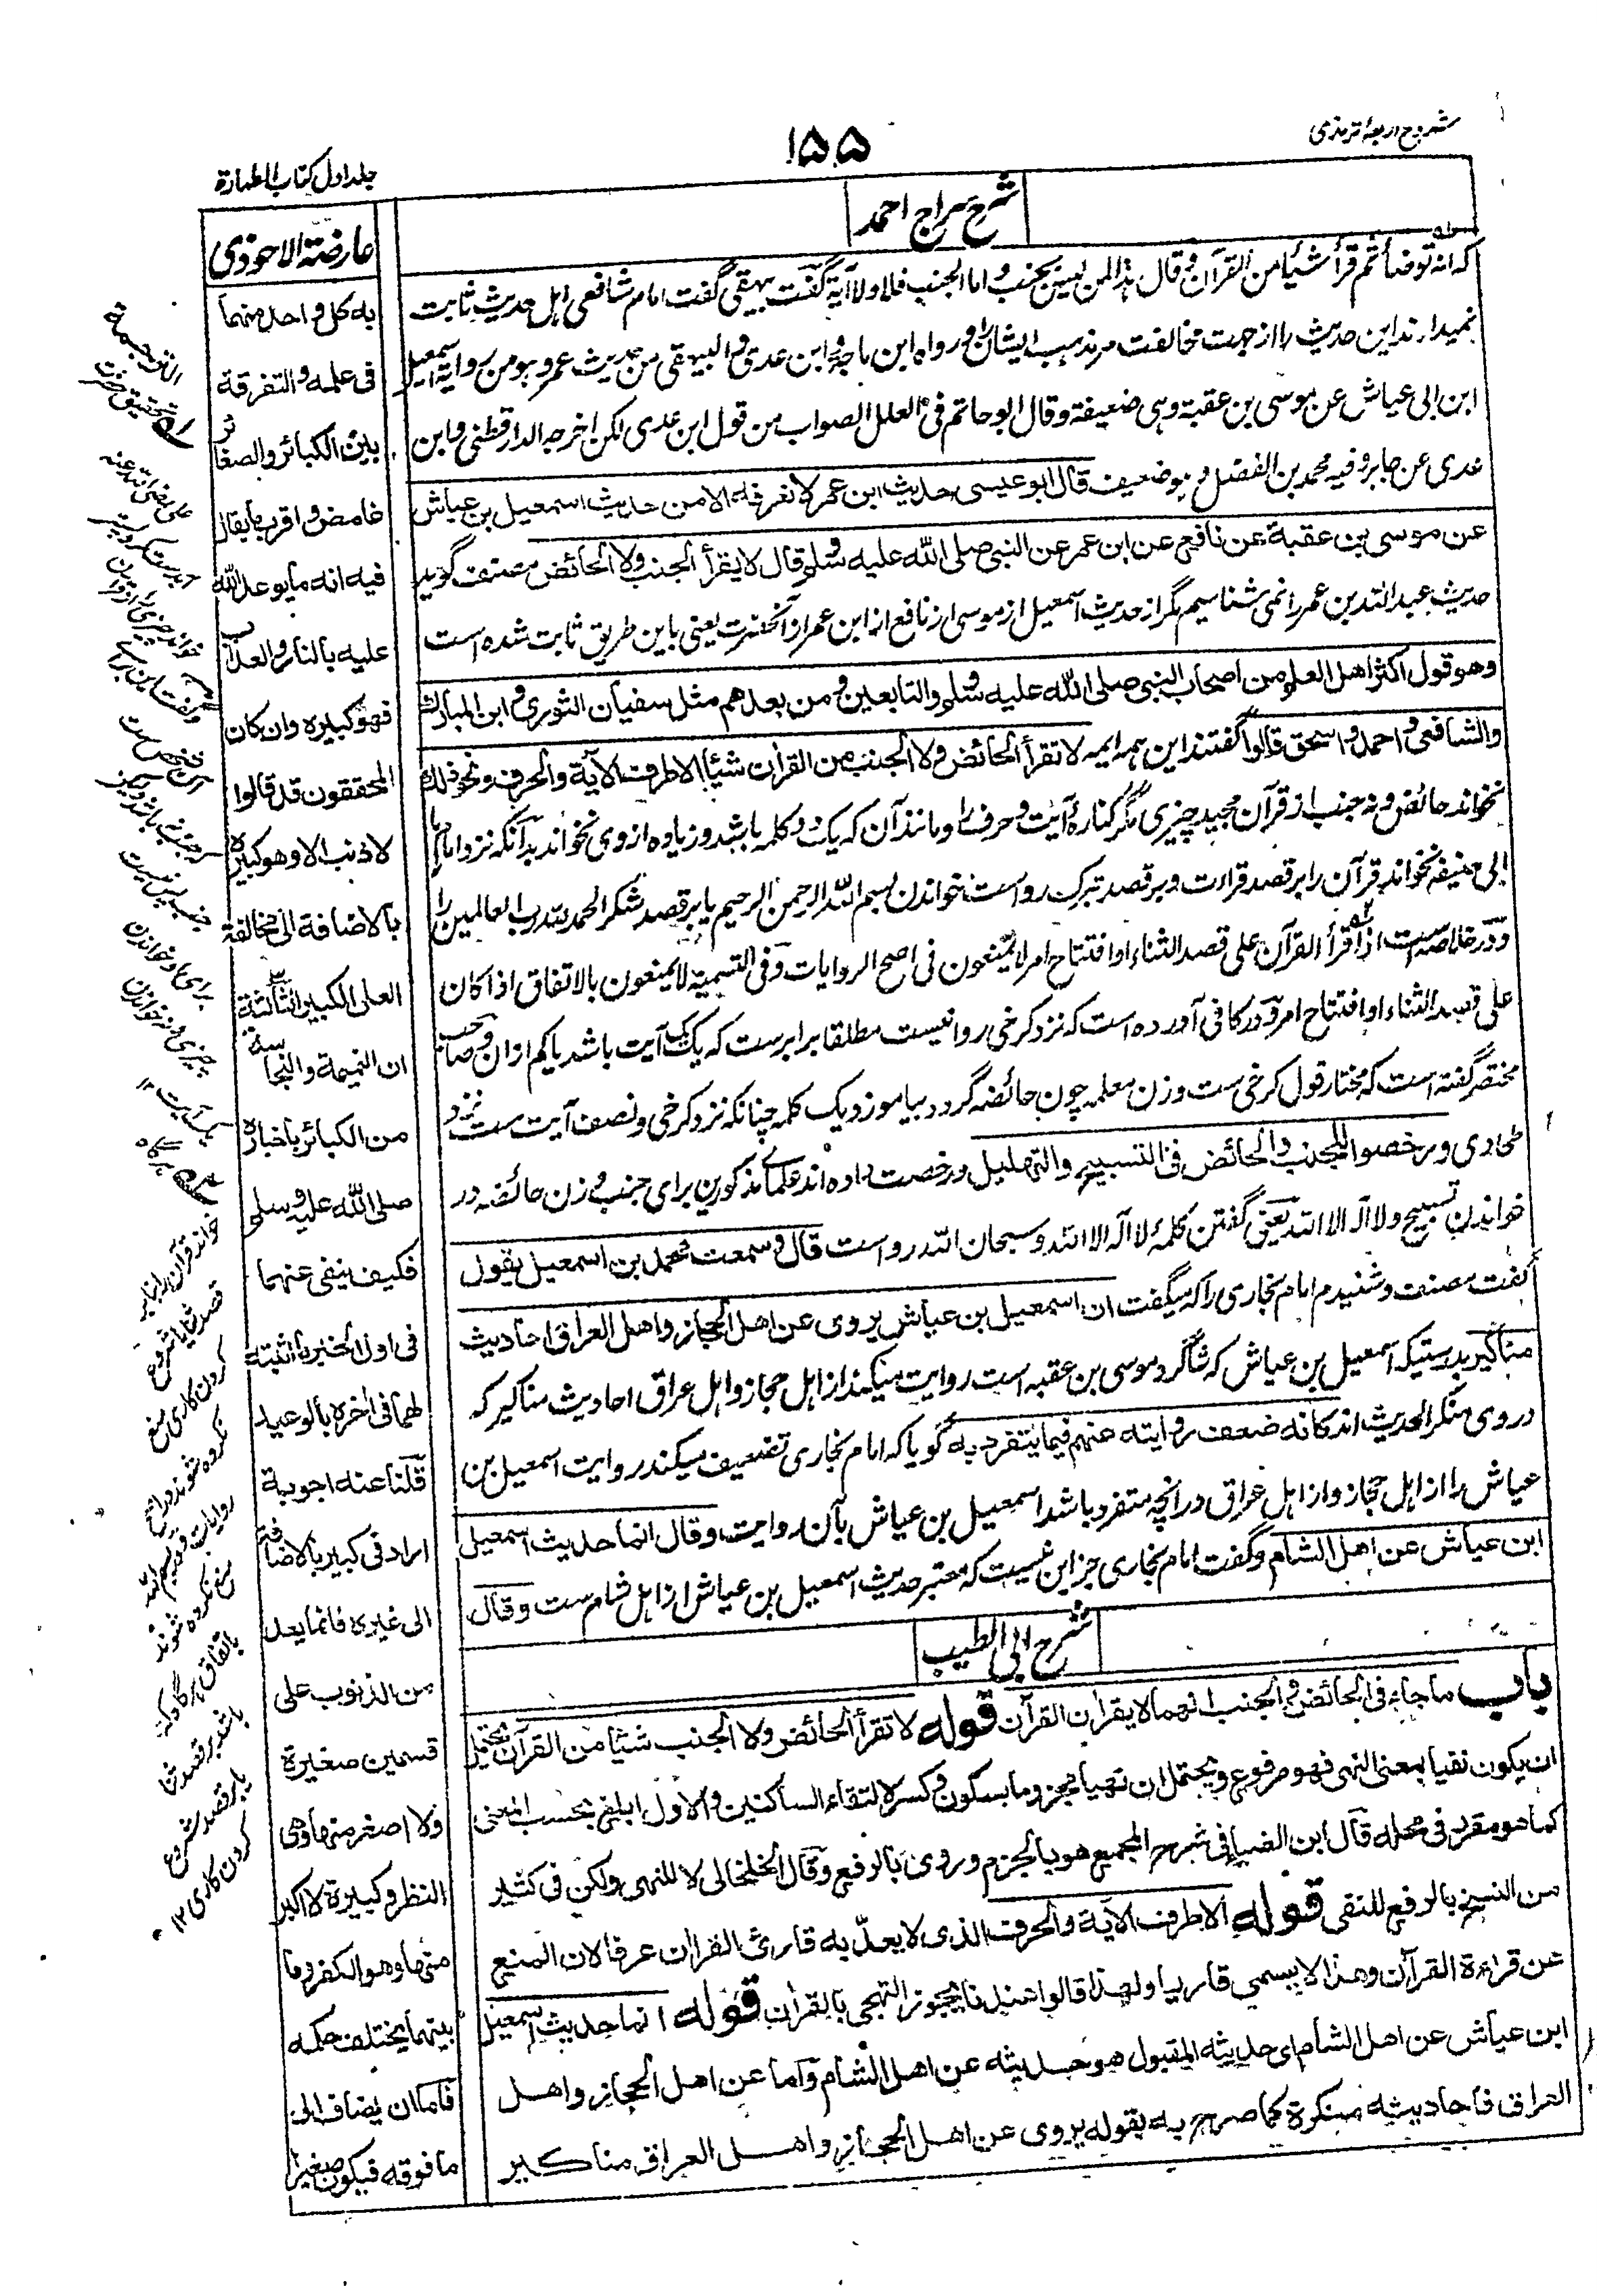 شروح اربعهٔ ترمذی
۱۵۵
جلد اول کتاب الطهارة
شرح سراج احمد
که انه توضأ ثم قرأ شیئا من القرآن و قال هذا لمن لیس بجنب و اما الجنب فلا ولا آیة گفت بیهقی گفت امام شافعی اهل حدیث ثابت
نمیدارند این حدیث را از جهت مخالفت مر مذهب ایشان را و رواه ابن ماجه و ابن عدی و البیهقی من حدیث عمر و هو من روایة اسمعیل
ابن ابی عیاش عن موسی بن عقبة وهی ضعیفة وقال ابو حاتم فی العلل الصواب من قول ابن عدی لکن اخرجه الدارقطنی و ابن
عدی عن جابر وفیه محمد بن الفضل و هو ضعیف قال ابو عیسی حدیث ابن عمر لا نعرفه الا من حدیث اسمعیل بن عیاش
عن موسی بن عقبة عن نافع عن ابن عمر عن النبی صلی الله علیه وسلم قال لا یقرأ الجنب ولا الحائض مصنف گوید
حدیث عبد الله بن عمر را نمی شناسیم مگر از حدیث اسمعیل از موسی از نافع از ابن عمر از آنحضرت یعنی باین طریق ثابت شده است
وهو قول اکثر اهل العلم من اصحاب النبی صلی الله علیه وسلم والتابعین و من بعدهم مثل سفیان الثوری و ابن المبارك
والشافعی و احمد و اسحق قالوا گفتند این همه ایمه لا تقرأ الحائض ولا الجنب من القرآن شیئا الا طرف الآیة والحرف ونحو ذلك
نخواند حائض و نه جنب از قرآن مجید چیزی مگر کنارهٔ آیت و حرف را و مانند آن که یک دو کلمه باشد و زیاده از وی نخواند بدانکه نزد امام ما
ابی حنیفه نخواند قرآن را بر قصد قراءت و بر قصد تبرک رواست خواندن بسم الله الرحمن الرحیم یا بر قصد شکر الحمد لله رب العالمین را
و در خلاصه است اذا قرأ القرآن علی قصد الثناء او افتتاح امر لا یمنعون فی اصح الروایات و فی التسمیة لا یمنعون بالاتفاق اذا کان
علی قصد الثناء او افتتاح امر و در کافی آورده است که نزد کرخی روا نیست مطلقا برابرست که یک آیت باشد یا کم ازان و صاحب
مختصر گفته است که مختار قول کرخی ست و زن معلمه چون حائضه گردد بیاموزد یک کلمه چنانکه نزد کرخی و نصف آیت ست نزد
طحاوی ورخصوا للجنب والحائض فی التسبیح والتهلیل و رخصت داده اند علمای مذکورین برای جنب و زن حائضه در
خواندن تسبیح ولا اله الا الله یعنی گفتن کلمهٔ لا اله الا الله و سبحان الله رواست قال و سمعت محمد بن اسمعیل یقول
گفت مصنف و شنیدم امام بخاری را که میگفت ان اسمعیل بن عیاش یروی عن اهل الحجاز واهل العراق احادیث
مناکیر بدرستیکه اسمعیل بن عیاش که شاگرد موسی بن عقبه است روایت میکند از اهل حجاز و اهل عراق احادیث مناکیر که
در وی منکر الحدیث اند کانه ضعف روایته عنهم فیما یتفرد به گویا که امام بخاری تضعیف میکند روایت اسمعیل بن
عیاش را از اهل حجاز و از اهل عراق در انچه متفرد باشد اسمعیل بن عیاش بآن روایت وقال انما حدیث اسمعیل
ابن عیاش عن اهل الشام و گفت امام بخاری جز این نیست که معتبر حدیث اسمعیل بن عیاش از اهل شام ست وقال
شرح ابی الطیب
باب ما جاء فی الحائض والجنب انهما لا یقرآن القرآن قوله لا تقرأ الحائض ولا الجنب شیئا من القرآن یحتمل
ان یکون نفیا بمعنی النهی فهو مرفوع ویحتمل ان نهیا مجزوما بسکون و کسر لالتقاء الساکنین والاول ابلغ بحسب المعنی
کما هو مقرر فی محله قال ابن الضیاء فی شرح المجمع هو بالجزم وروی بالرفع وقال الخلخالی لا للنهی ولکن فی کثیر
من النسخ بالرفع للنفی قوله الا طرف الآیة والحرف الذی لا یعد به قارئ القرآن عرفا لان المنع
عن قراءة القرآن وهذا لا یسمی قاریا ولهذا قالوا عندنا یجوز التهجی بالقرآن قوله انما حدیث اسمعیل
ابن عیاش عن اهل الشام ای حدیثه المقبول هو حدیثه عن اهل الشام واما عن اهل الحجاز واهل
العراق فاحادیثه منکرة کما صرح به بقوله یروی عن اهل الحجاز واهل العراق مناکیر
عارضة الاحوذی
به کل واحد منهما
فی علمه والتفرقة
بین الکبائر والصغائر
غامض واقرب ما یقال
فیه انه ما یوعد الله
علیه بالنار والعذاب
فهو کبیرة وان کان
المحققون قد قالوا
لا ذنب الا وهو کبیرة
بالاضافة الی مخالفة
العلی الکبیر الثالثة
ان النمیمة والنجاسة
من الکبائر باخباره
صلی الله علیه وسلم
فکیف ینفی عنهما
فی اول الخبر ما اثبته
لهما فی اخره بالوعید
قلنا عنه اجوبة
اراد فی کبیر بالاضافة
الی غیره فانما یعد
من الذنوب علی
قسمین صغیرة
ولا اصغر منها وهی
النظر وکبیرة لا اکبر
منها وهو الکفر وما
بینهما یختلف حکمه
فاما ان یضاف الی
ما فوقه فیکون صغیرا
الترجمة
تحقیق حضرت
علی رضی الله عنه
خواند چیزی را از قرآن
و گفت این برای
آن شخص ست
که جنب نباشد و لیکن
جنب پس نیست
برای او خواندن
چیزی و نه خواندن
یک آیت ۱۲
هرگاه
خواند قرآن را بنا بر
قصد ثنا یا شروع
کردن کاری منع
نکرده شوند در اصح
روایات و در بسم الله
منع نکرده شوند
باتفاق هرگاه که
باشد بر قصد ثنا
یا بر قصد شروع
کردن کاری ۱۲